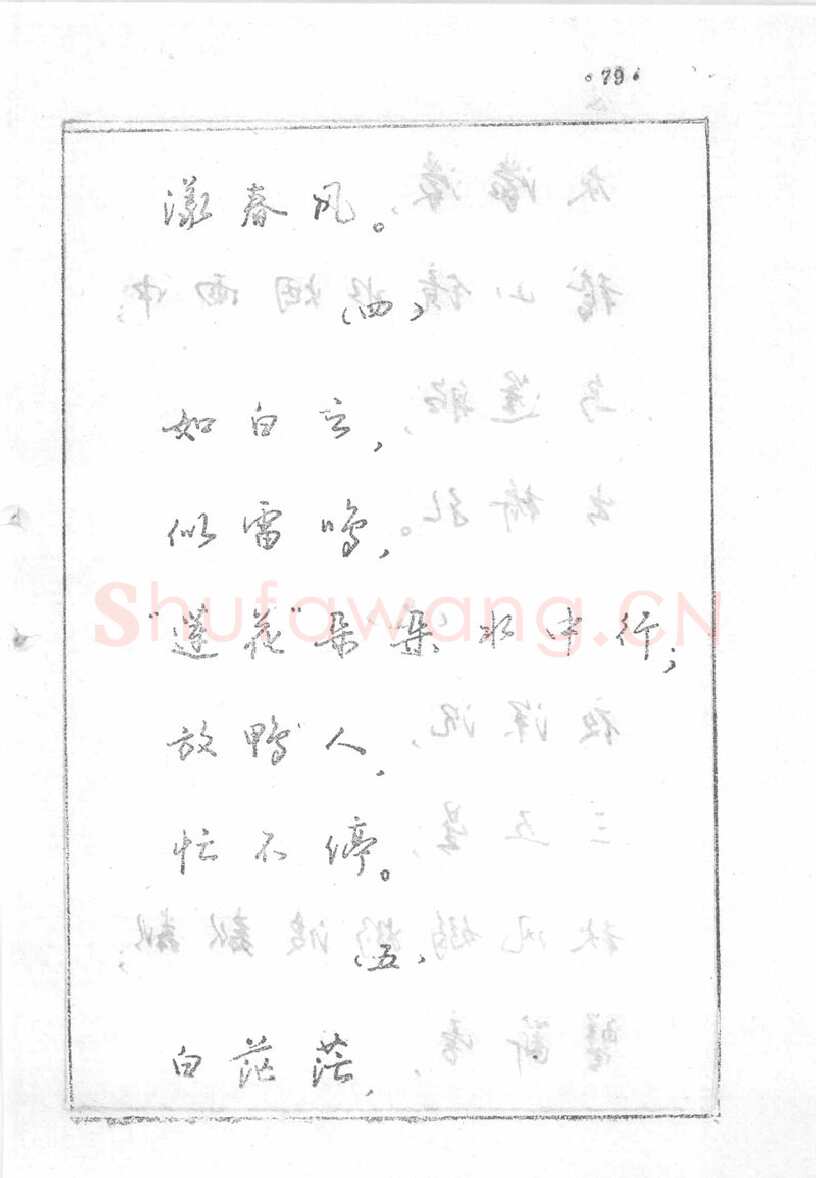 ·79·
漾春风。
（四）
如白云，
似雷鸣，
“莲花”朵朵水中行；
放鸭人，
忙不停。
（五）
白茫茫，
ShufaWang.CN